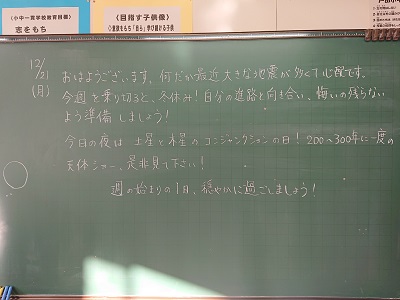 〈小中一貫学校教育目標〉
志をもち
〈目指す子供像〉
12/21
(月)
おはようございます。何だか最近大きな地震が多くて心配です。
今週を乗り切ると、冬休み！自分の進路と向き合い、悔いの残らない
よう準備しましょう！
今日の夜は土星と木星のコンジャンクションの日！200〜300年に一度の
天体ショー、是非見て下さい！
週の始まりの1日、穏やかに過ごしましょう！